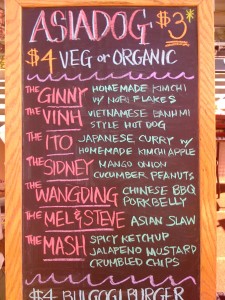 ASIADOG $3*
$4 VEG or ORGANIC
THE GINNY HOMEMADE KIMCHI
w/ NORI FLAKES
THE VINH VIETNAMESE BANH MI
STYLE HOT DOG
THE ITO JAPANESE CURRY w/
HOMEMADE KIMCHI APPLE
THE SIDNEY MANGO ONION
CUCUMBER PEANUTS
THE WANGDING CHINESE BBQ
PORK BELLY
THE MEL & STEVE ASIAN SLAW
THE MASH SPICY KETCHUP
JALAPENO MUSTARD
CRUMBLED CHIPS
$4 BULGOGI BURGER